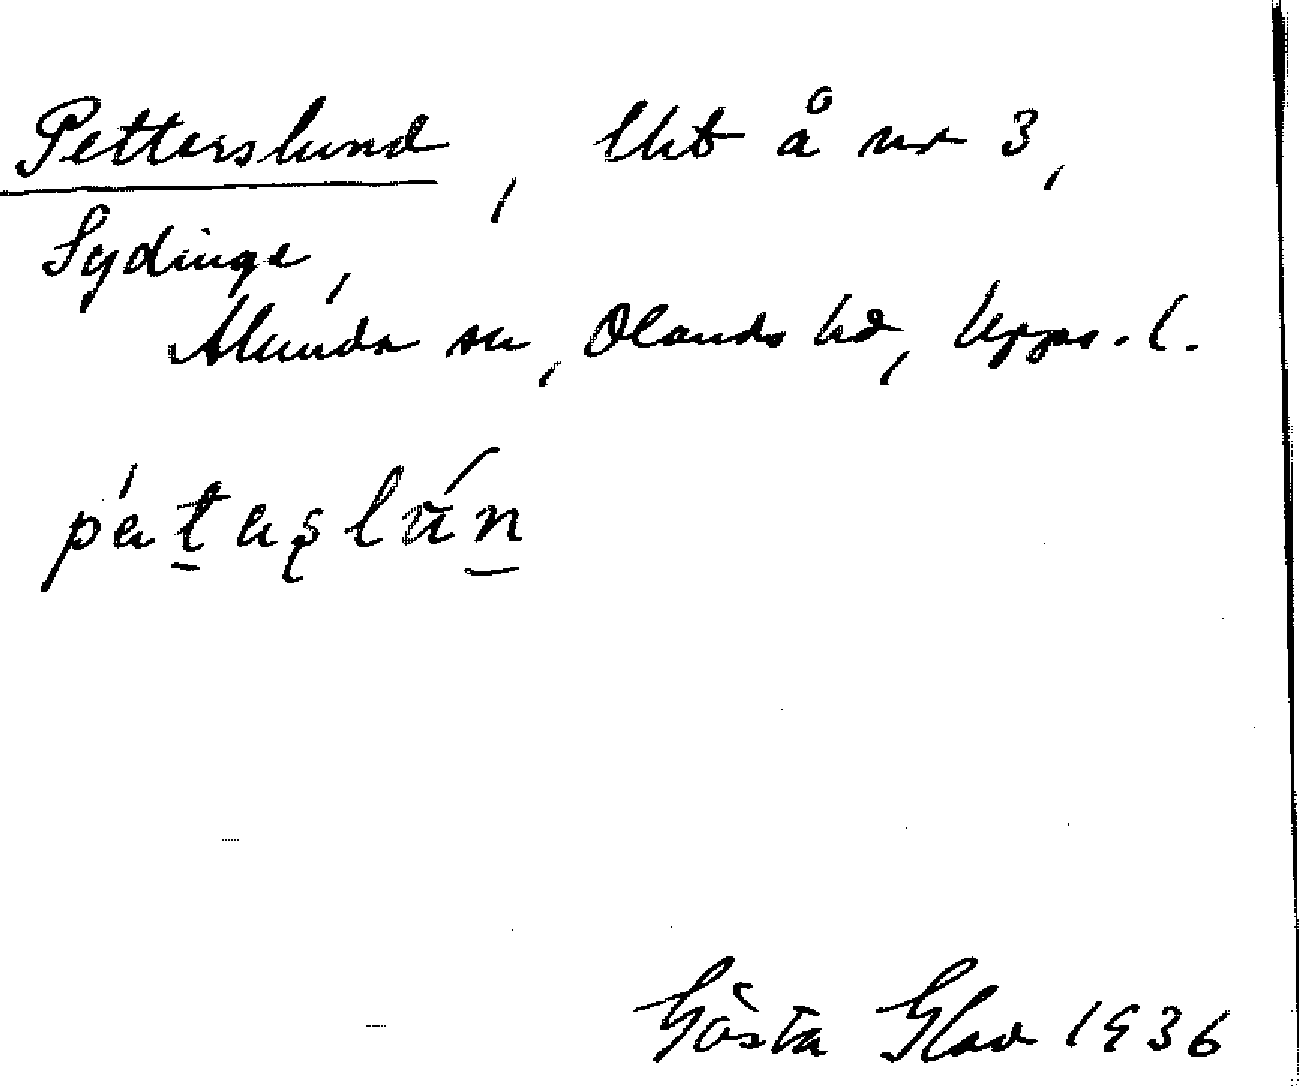 Petterslund, lht å nr 3,
Sydinge,
Alunda sn, Olands hd, Upps. l.
pa̍ṯaꞩlún̲
Gösta Glad 1936